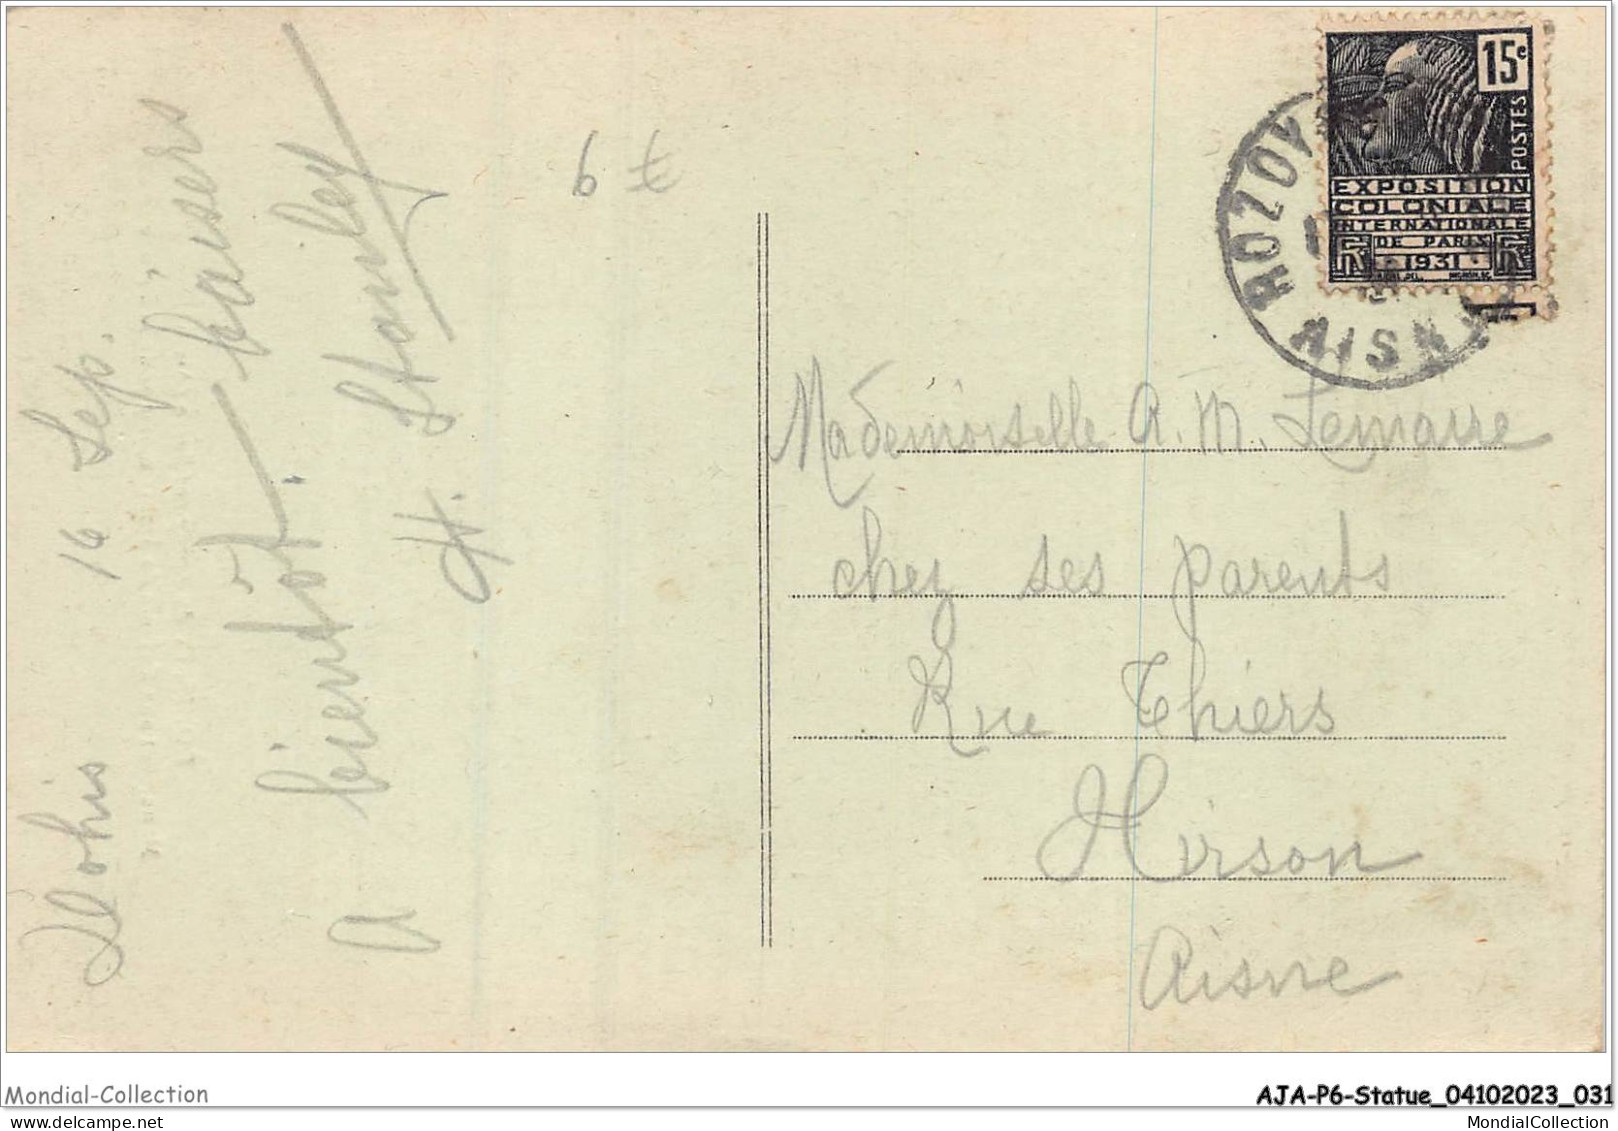 Dohis 16 Sep.
A bientôt. baisers
H. Stanley
6 €
15c
POSTES
EXPOSITION
COLONIALE
INTERNATIONALE
DE PARIS
1931
ROZOY
AISNE
Mademoiselle A. M. Lemaire
chez ses parents
Rue Thiers
Hirson
Aisne
Mondial-Collection
AJA-P6-Statue_04102023_031
MondialCollection